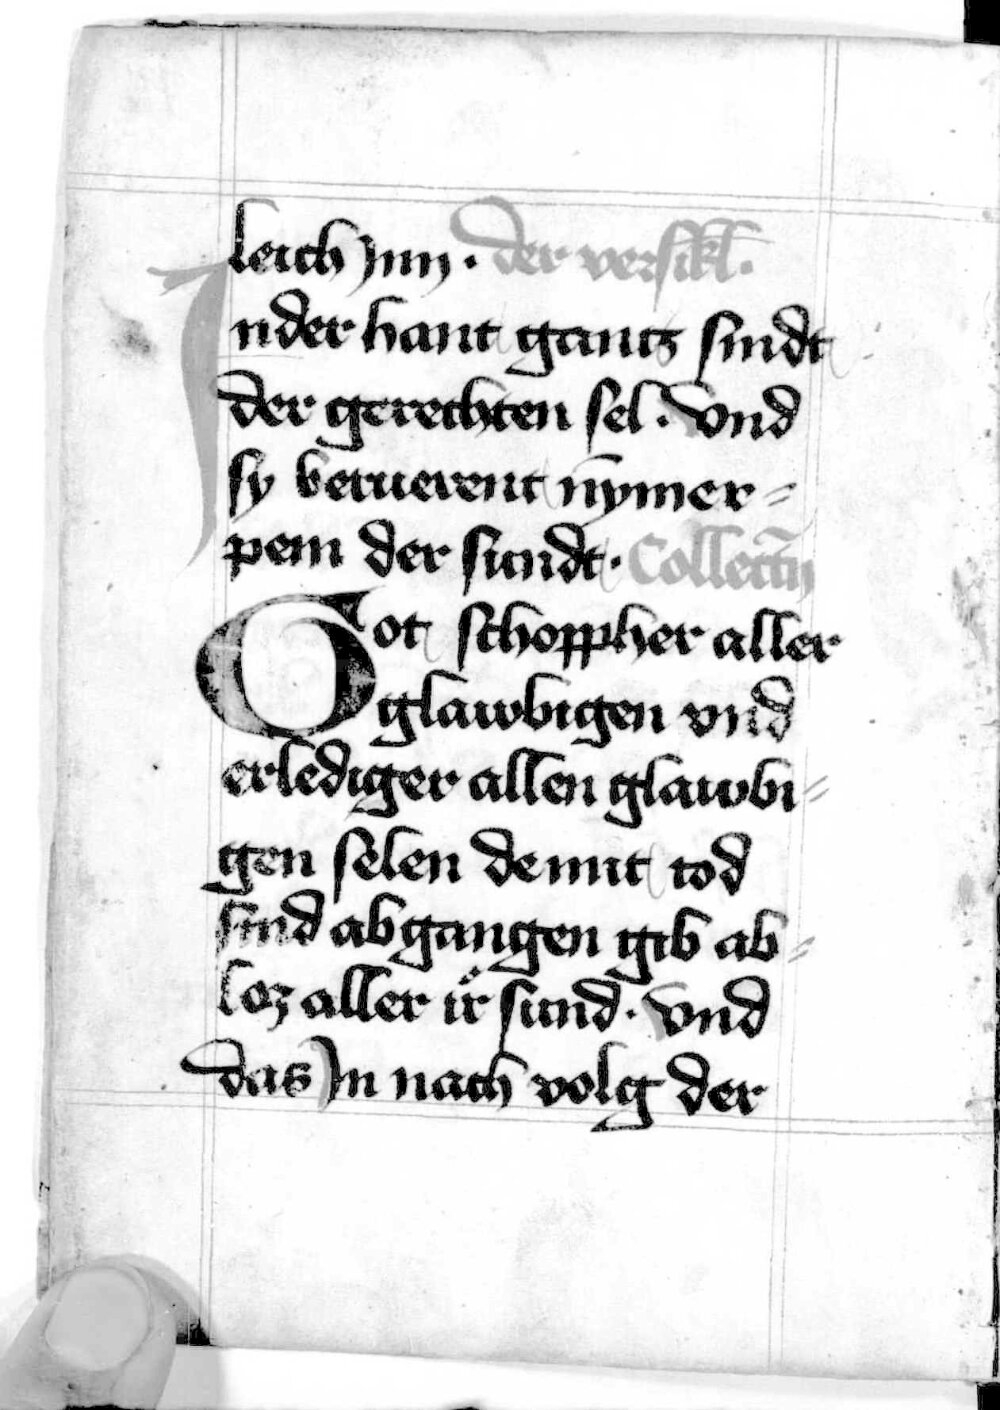 leich Jnn · der versikl.
Jnder hant gancz sindt
der gerechten sel · vnd
sy beruerent nȳmer=
pein der sundt · Collectā
Got schoppher aller
glawbigen vnd
erlediger allen glawbi=
gen selen de mit tod
sind abgangen gib ab=
loz aller ir sund · vnd
das Jn nach volg der